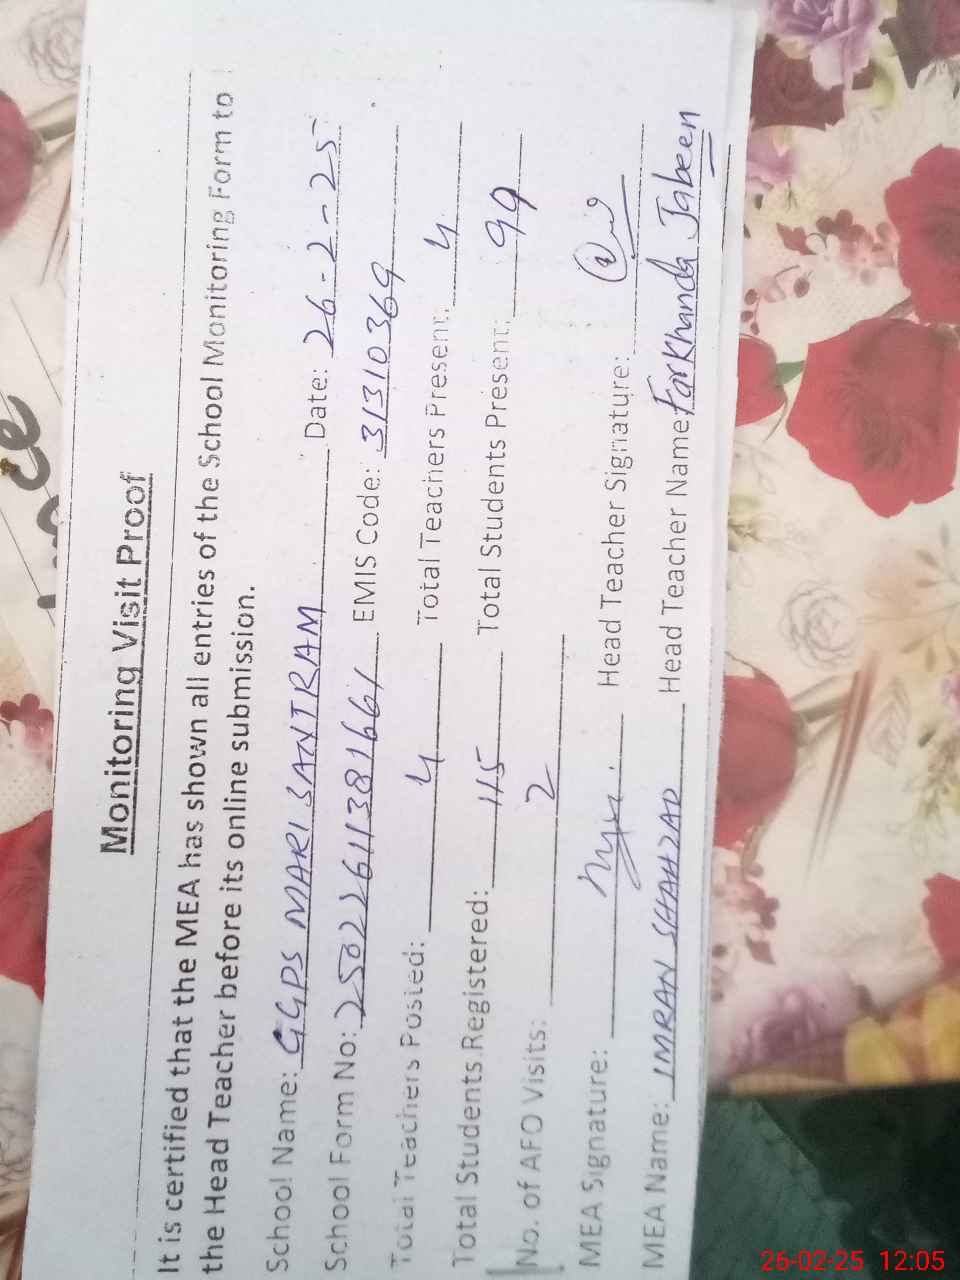 Monitoring Visit Proof
It is certified that the MEA has shown all entries of the School Monitoring Form to
the Head Teacher before its online submission.
School Name: GGPS MARI SANTRAM Date: 26-2-25
School Form No: 250226113816661 EMIS Code: 31310369
Total Teachers Posted: 4 Total Teachers Present: 4
Total Students Registered: 115 Total Students Present: 99
No. of AFO Visits: 2
MEA Signature: Head Teacher Signature:
MEA Name: IMRAN SHAHZAD Head Teacher Name: Farkhanda Jabeen
26-02-25 12:05